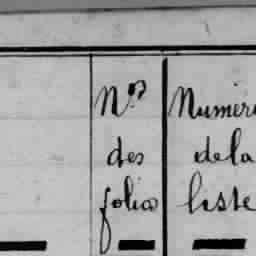 Nos
des
folios
Numéro
de la
liste